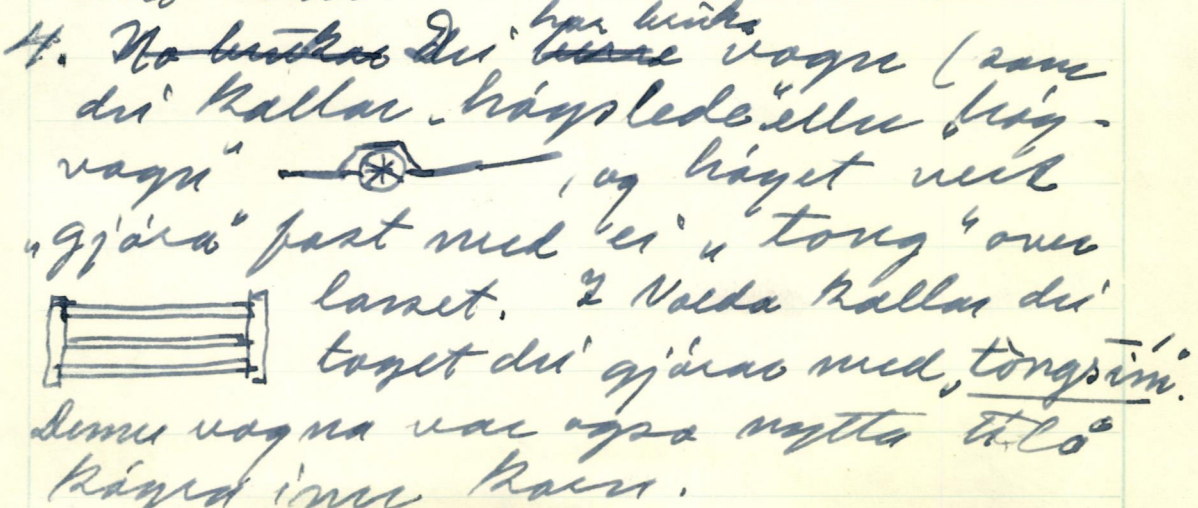 har bruka
4. No brukar Dei bruka vogn (som
dei kallar „høysledé" eller „høy-
vogn" , og høyet vert
„gjøra" fast med ei „tong" over
lasset. I Volda kallar dei
toget dei gjørar med „tongsim".
Denne vogna var også nytta til å
køyra inn korn.